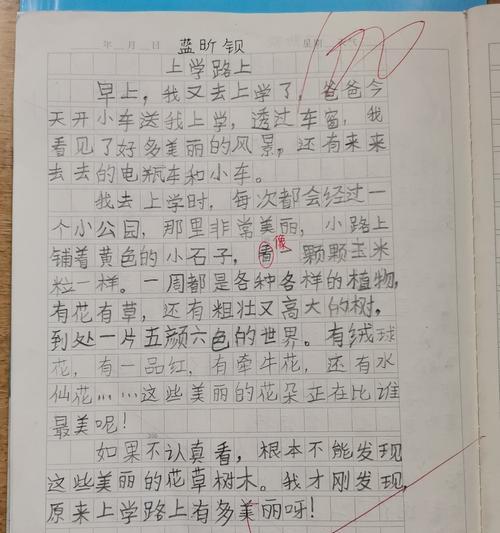 年 月 日 蓝昕钡 星期
上学路上
早上，我又去上学了，爸爸今
天开小车送我上学，透过车窗，我
看见了好多美丽的风景，还有来来
去去的电瓶车和小车。
我去上学时，每次都会经过一
个小公园，那里非常美丽，小路上
铺着黄色的小石子，看像一颗颗玉米
粒一样。一周都是各种各样的植物，
有花有草，还有粗壮又高大的树，
到处一片五颜六色的世界。有绒球
花，有一品红，有牵牛花，还有水
仙花……这些美丽的花朵正在比谁
最美呢！
如果不认真看，根本不能发现
这些美丽的花草树木。我才刚发现，
原来上学路上有多美丽呀！